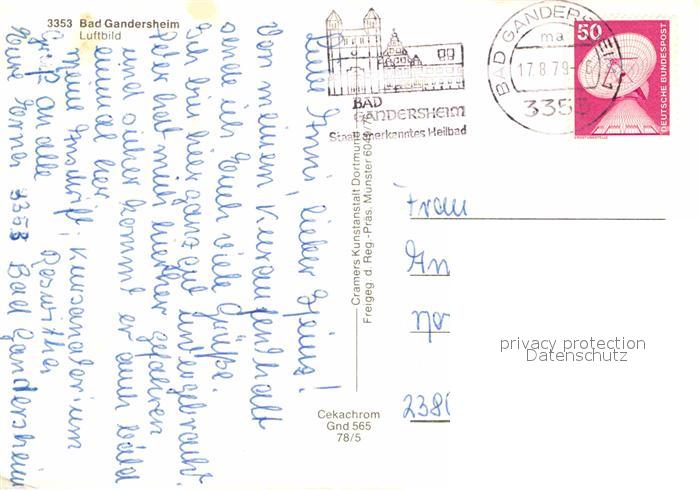 3353 Bad Gandersheim
Luftbild
BAD
GANDERSHEIM
Staatl. anerkanntes Heilbad
BAD GANDERSHEIM
ma
17.8.79
3353
50
DEUTSCHE BUNDESPOST
ERDFUNKSTELLE
Cramers Kunstanstalt Dortmund
Freigeg. d. Reg.-Präs. Münster
Cekachrom
Gnd 565
78/5
Frau
An
2381
privacy protection
Datenschutz
lieber Heinz!
Von meinem Kuraufenthalt
sende ich Euch viele Grüße.
Bin hier ganz gut untergebracht.
Peter hat mich hierher gefahren
und kommt er auch bald
einmal her.
Meine Anschrift: Kursanatorium
Gruß an alle Roswitha
3353 Bad Gandersheim